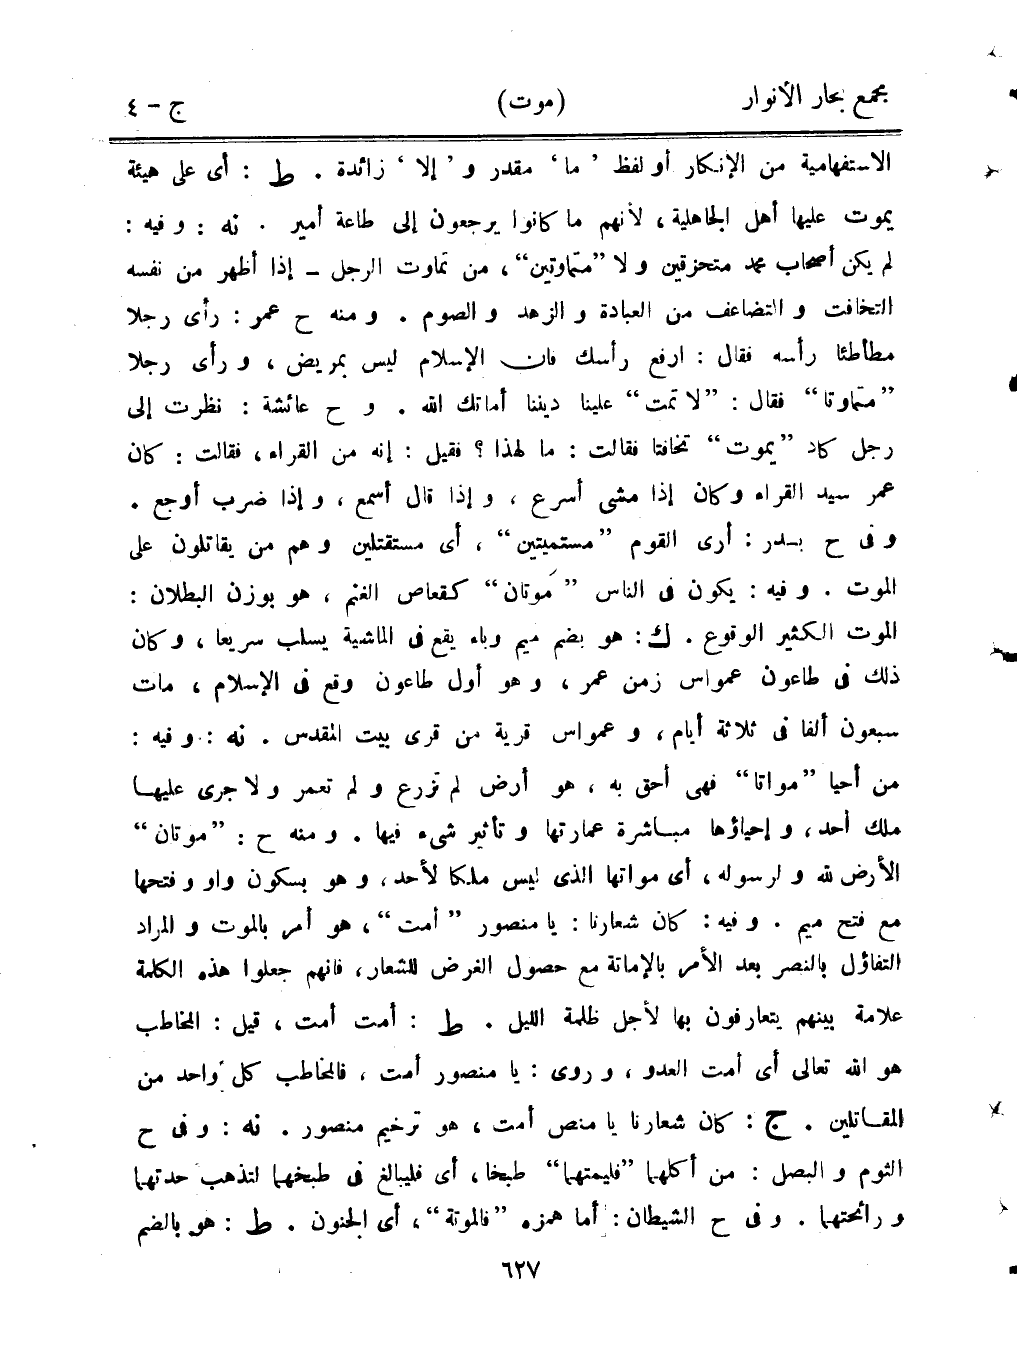 مجمع بحار الأنوار (موت) ج - ٤
الاستفهامية من الإنكار أو لفظ ’ ما‘ مقدر و ’ إلا ‘ زائدة . ط : أى على هيئة
يموت عليها أهل الجاهلية ، لأنهم ما كانوا يرجعون إلى طاعة أمير . نه : و فيه :
لم يكن أصحاب محمد متحزقين و لا ”متماوتين“ ، من تماوت الرجل ــ إذا أظهر من نفسه
التخافت و التضاعف من العبادة و الزهد و الصوم . و منه ح عمر : رأى رجلا
مطأطئا رأسه فقال : ارفع رأسك فان الإسلام ليس بمريض ، و رأى رجلا
”متماوتا“ فقال : ”لا تمت“ علينا ديننا أماتك الله . و ح عائشة : نظرت إلى
رجل كاد ”يموت“ تخافتا فقالت : ما لهذا ؟ فقيل : إنه من القراء ، فقالت : كان
عمر سيد القراء و كان إذا مشى أسرع ، و إذا قال أسمع ، و إذا ضرب أوجع .
و فى ح بدر : أرى القوم ”مستميتين“ ، أى مستقتلين و هم من يقاتلون على
الموت . و فيه : يكون فى الناس ” مَوتان“ كقعاص الغنم ، هو بوزن البطلان :
الموت الكثير الوقوع . ك : هو بضم ميم وباء يقع فى الماشية يسلب سريعا ، و كان
ذلك فى طاعون عمواس زمن عمر ، و هو أول طاعون وقع فى الإسلام ، مات
سبعون ألفا فى ثلاثة أيام ، و عمواس قرية من قرى بيت المقدس . نه : و فيه :
من أحيا ”مواتا“ فهى أحق به ، هو أرض لم تزرع و لم تعمر و لا جرى عليها
ملك أحد ، و إحياؤها مباشرة عمارتها و تأثير شىء فيها . و منه ح : ”موتان“
الأرض لله و لرسوله ، أى مواتها الذى ليس ملكا لأحد ، و هو بسكون واو و فتحها
مع فتح ميم . و فيه : كان شعارنا : يا منصور ” أمت“ ، هو أمر بالموت و المراد
التفاؤل بالنصر بعد الأمر بالإماتة مع حصول الغرض للشعار ، فانهم جعلوا هذه الكلمة
علامة بينهم يتعارفون بها لأجل ظلمة الليل . ط : أمت أمت ، قيل : المخاطب
هو الله تعالى أى أمت العدو ، و روى : يا منصور أمت ، فالمخاطب كل واحد من
المقاتلين . ج : كان شعارنا يا منص أمت ، هو ترخيم منصور . نه : و فى ح
الثوم و البصل : من أكلهما ”فليمتهما“ طبخا ، أى فليبالغ فى طبخهما لتذهب حدتهما
و رائحتهما . و فى ح الشيطان : أما همزه ”فالموتة“ ، أى الجنون . ط : هو بالضم
٦٢٧